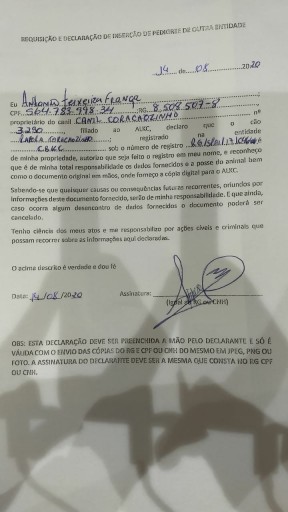 REQUISIÇÃO E DECLARAÇÃO DE INSERÇÃO DE PEDIGREE DE OUTRA ENTIDADE
14 de 08 2020
Eu Antonio Teixeira França
CPF 564.783.498.34 RG 8.508.507-8
proprietário do canil CANIL CORACAOZINHO nº
3.290 filiado ao AUKC, declaro que o cão
registrado na entidade
C.B.K.C. sob o número de registro
de minha propriedade, autorizo que seja feito o registro em meu nome, e reconheço
que é de minha total responsabilidade os dados fornecidos e a posse do animal bem
como o documento original em mãos, onde forneço a cópia digital para o AUKC.
Sabendo-se que quaisquer causas ou consequências futuras recorrentes, oriundos por
informações deste documento fornecido, serão de minha responsabilidade. E que ainda,
caso ocorra algum desencontro de dados fornecidos o documento poderá ser
cancelado.
Tenho ciência dos meus atos e me responsabilizo por ações cíveis e criminais que
possam recorrer sobre as informações aqui declaradas.
O acima descrito é verdade e dou fé
Data: 14/08/2020 Assinatura:
(Igual ao RG ou CNH)
OBS: ESTA DECLARAÇÃO DEVE SER PREENCHIDA A MÃO PELO DECLARANTE E SÓ É
VÁLIDA COM O ENVIO DAS CÓPIAS DO RG E CPF OU CNH DO MESMO EM JPEG, PNG OU
FOTO. A ASSINATURA DO DECLARANTE DEVE SER A MESMA QUE CONSTA NO RG CPF
OU CNH.